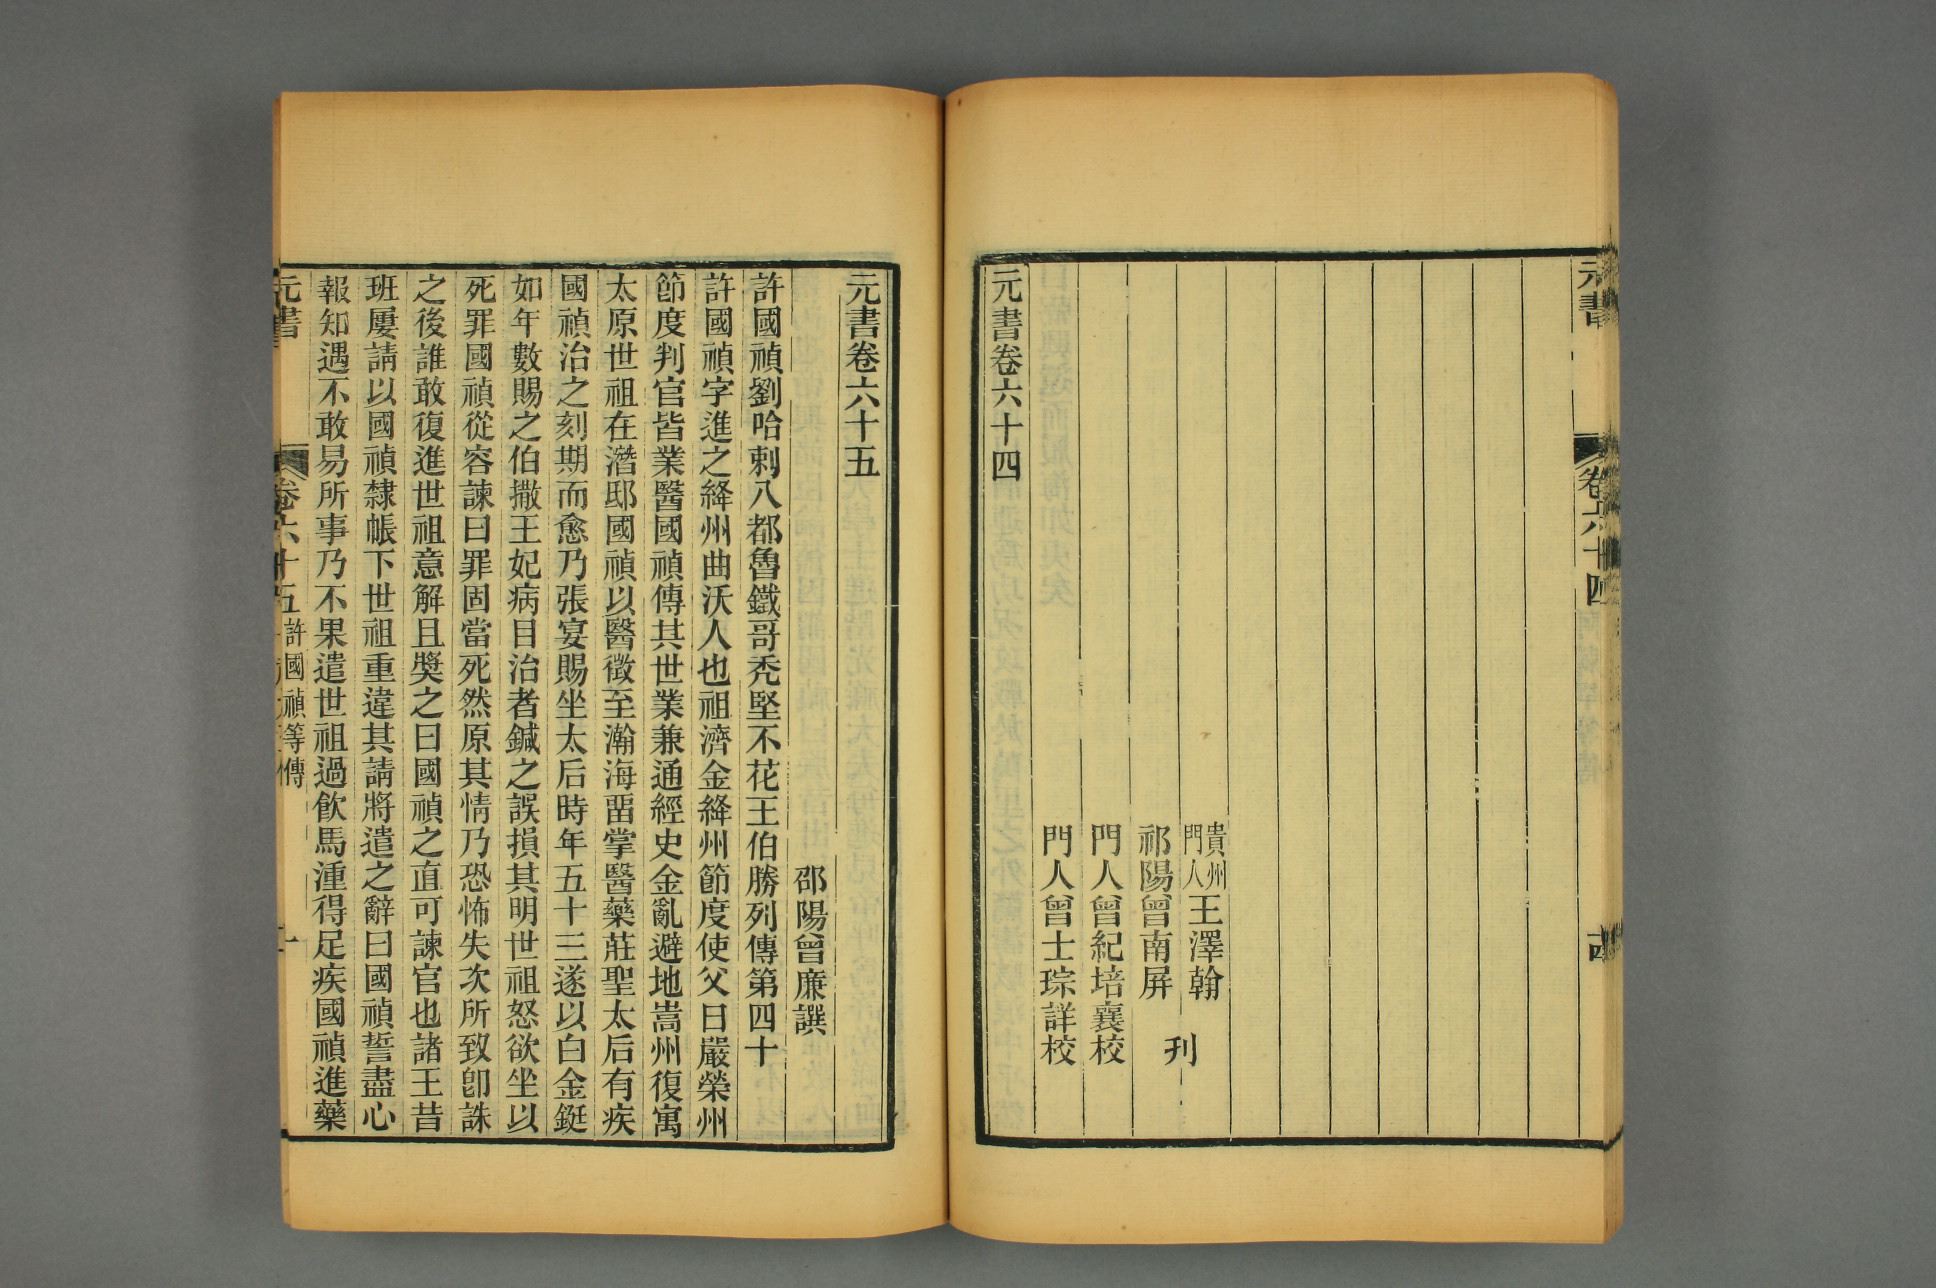 元書
卷六十四
貴州門人王澤翰
祁陽曾南屏
刊
門人曾紀培襄校
門人曾士琮詳校
元書卷六十四
元書卷六十五
邵陽曾廉譔
許國禎劉哈剌八都魯鐵哥禿堅不花王伯勝列傳第四十
許國禎字進之絳州曲沃人也祖濟金絳州節度使父日嚴榮州
節度判官皆業醫國禎傳其世業兼通經史金亂避地嵩州復寓
太原世祖在潛邸國禎以醫徵至瀚海畱掌醫藥莊聖太后有疾
國禎治之刻期而愈乃張宴賜坐太后時年五十三遂以白金鋌
如年數賜之伯撒王妃病目治者鍼之誤損其明世祖怒欲坐以
死罪國禎從容諫曰罪固當死然原其情乃恐怖失次所致卽誅
之後誰敢復進世祖意解且獎之曰國禎之直可諫官也諸王昔
班屢請以國禎隸帳下世祖重違其請將遣之辭曰國禎誓盡心
報知遇不敢易所事乃不果遣世祖過飮馬湩得足疾國禎進藥
元書
卷六十五
許國禎等傳
一